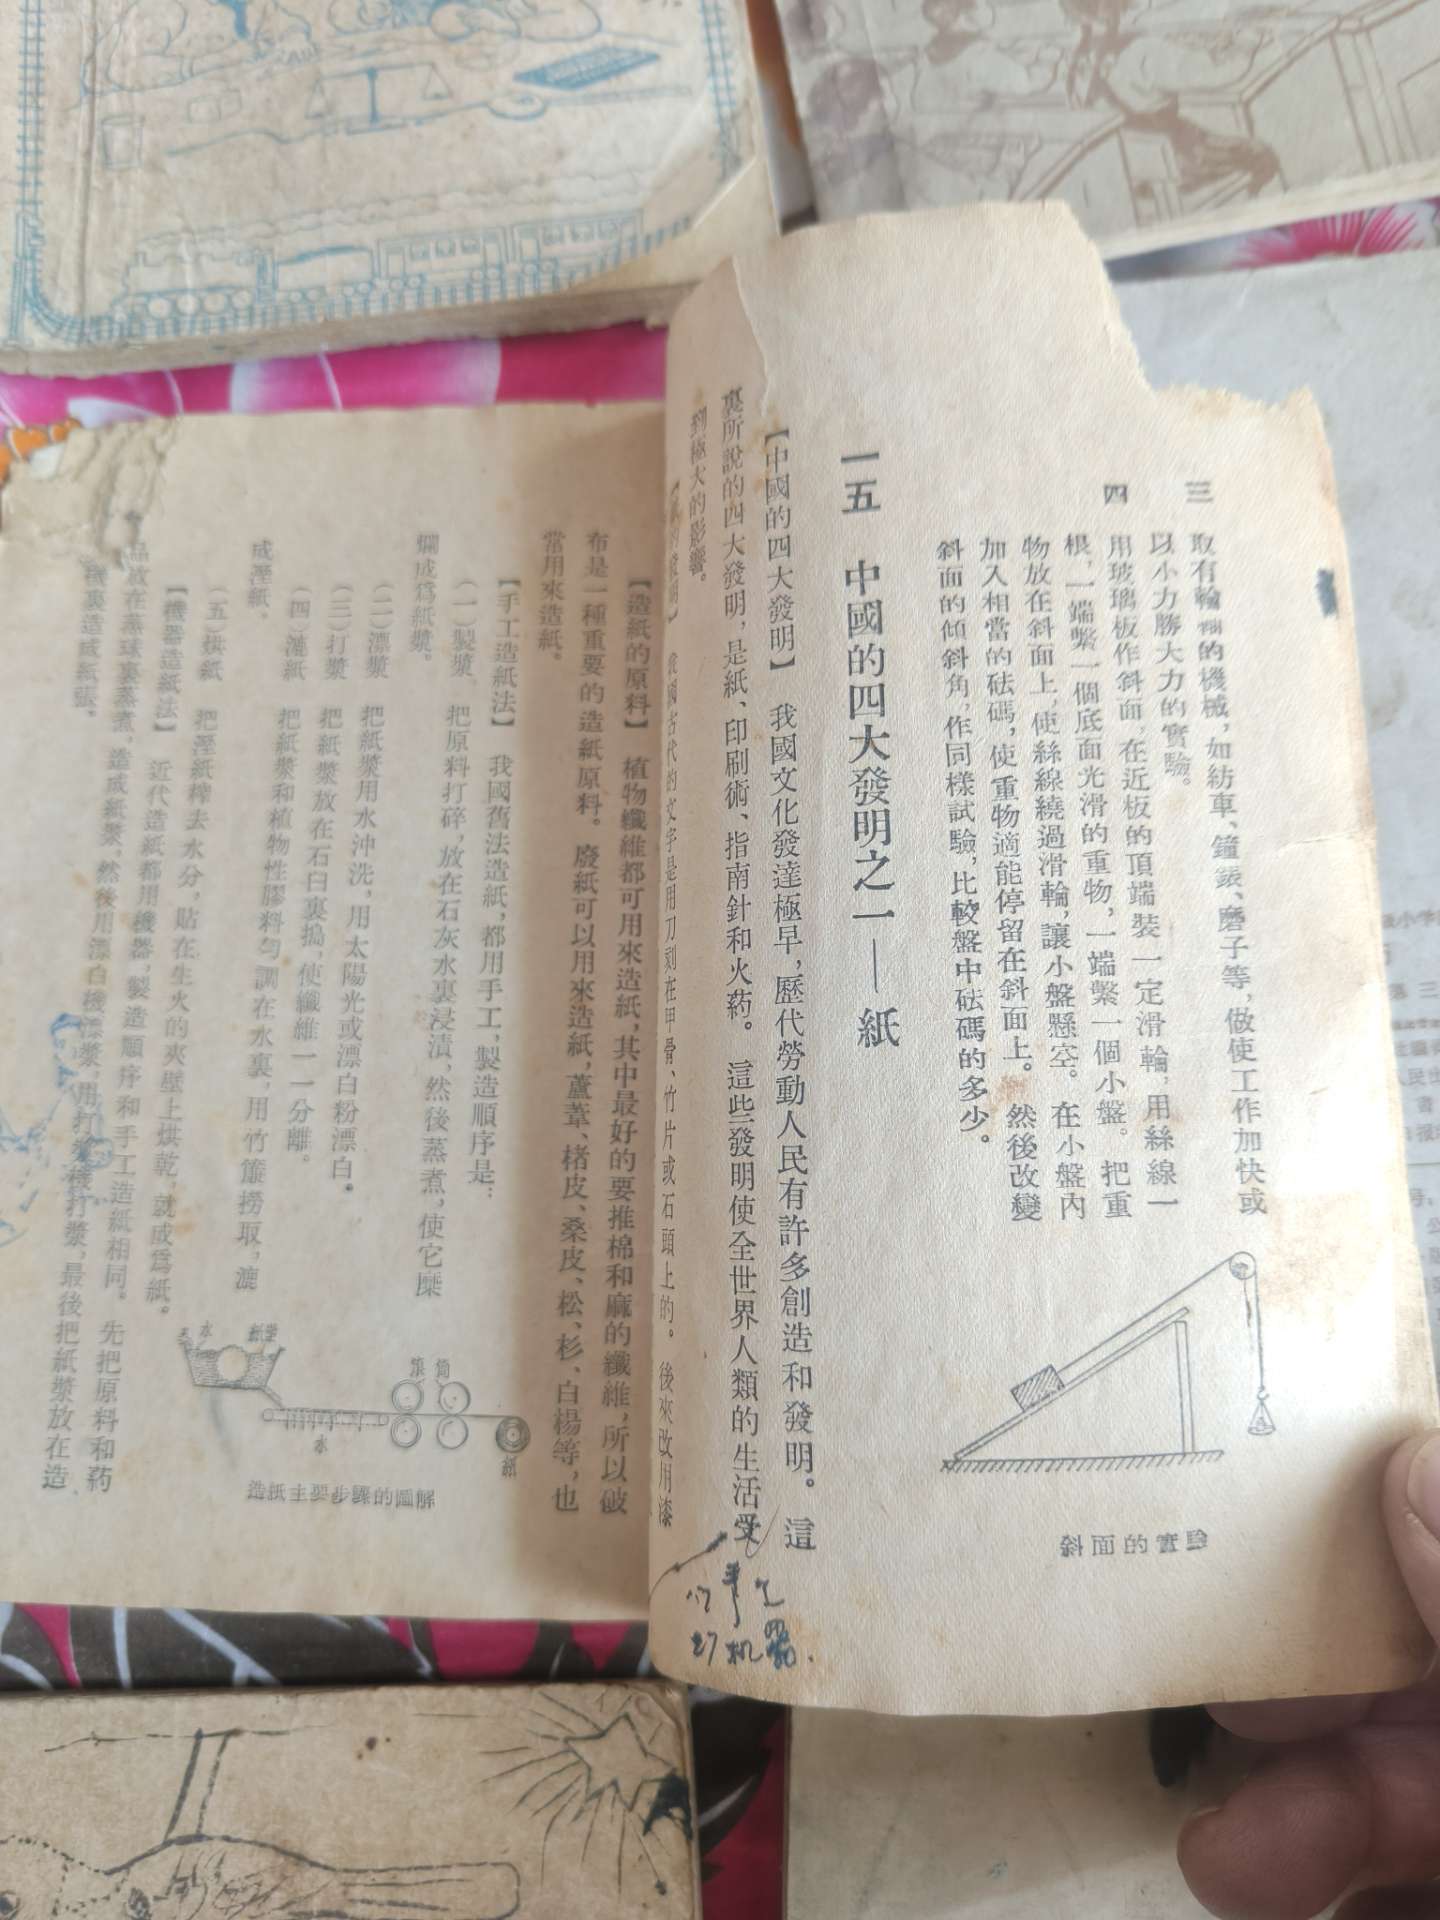 三　取有輪軸的機械，如紡車、鐘錶、磨子等，做使工作加快或
以小力勝大力的實驗。
四　用玻璃板作斜面，在近板的頂端裝一定滑輪，用絲線一
根，一端繫一個底面光滑的重物，一端繫一個小盤。把重
物放在斜面上，使絲線繞過滑輪，讓小盤懸空。在小盤內
加入相當的砝碼，使重物適能停留在斜面上。然後改變
斜面的傾斜角，作同樣試驗，比較盤中砝碼的多少。
斜面的實驗
一五　中國的四大發明之一——紙
【中國的四大發明】　我國文化發達極早，歷代勞動人民有許多創造和發明。這
裏所說的四大發明，是紙、印刷術、指南針和火葯。這些發明使全世界人類的生活受
到極大的影響。
【紙的發明】　我國古代的文字是用刀刻在甲骨、竹片或石頭上的。後來改用漆
【造紙的原料】　植物纖維都可用來造紙，其中最好的要推棉和麻的纖維，所以破
布是一種重要的造紙原料。廢紙可以用來造紙，蘆葦、楮皮、桑皮、松、杉、白楊等，也
常用來造紙。
【手工造紙法】　我國舊法造紙，都用手工，製造順序是：
（一）製漿　把原料打碎，放在石灰水裏浸漬，然後蒸煮，使它糜
爛成爲紙漿。
（二）漂漿　把紙漿用水沖洗，用太陽光或漂白粉漂白。
（三）打漿　把紙漿放在石臼裏搗，使纖維一一分離。
（四）漉紙　把紙漿和植物性膠料勻調在水裏，用竹簾撈取，漉
成溼紙。
（五）烘紙　把溼紙榨去水分，貼在生火的夾壁上烘乾，就成爲紙。
【機器造紙法】　近代造紙都用機器，製造順序和手工造紙相同。先把原料和葯
品放在蒸球裏蒸煮，造成紙漿，然後用漂白機漂漿，用打漿機打漿，最後把紙漿放在造
機裏造成紙張。
水
紙漿
滾筒
水
紙
造紙主要步驟的圖解